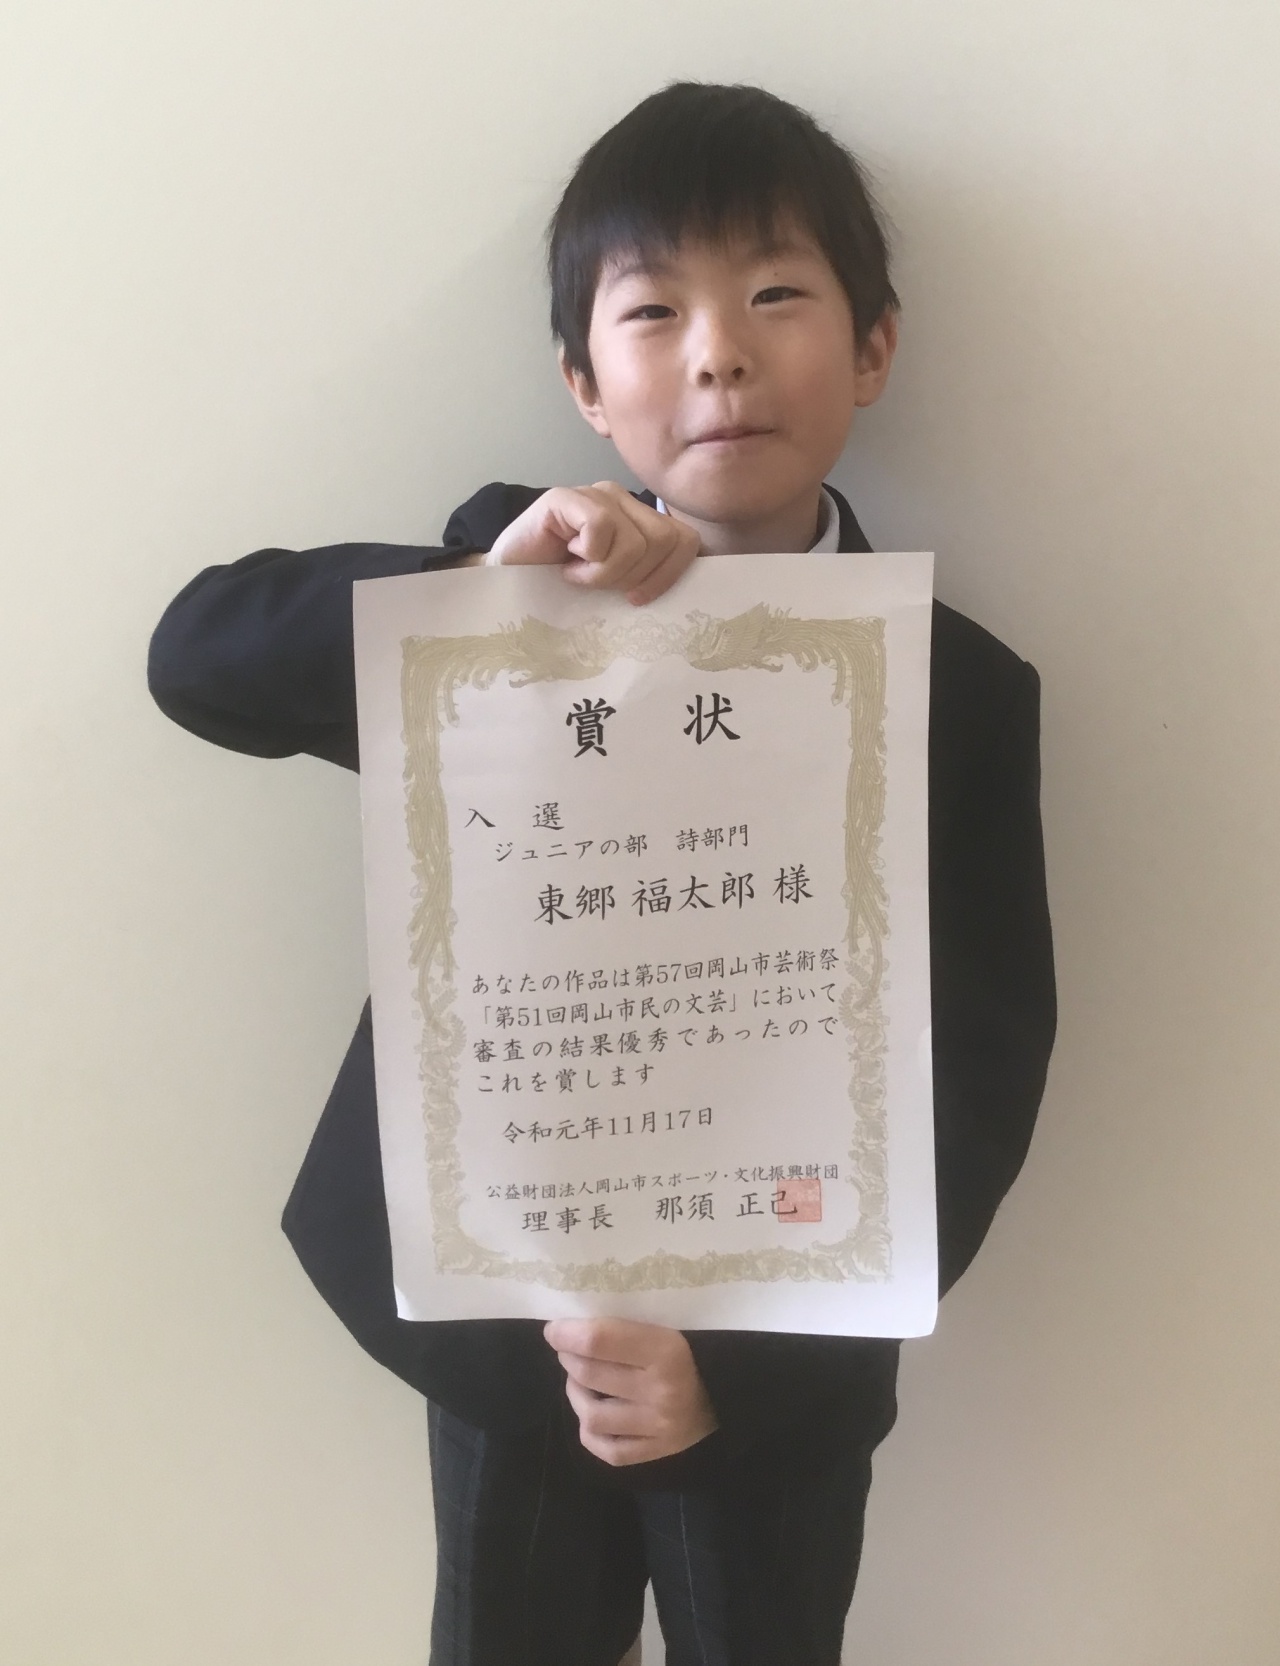 賞 状
入 選
ジュニアの部 詩部門
東郷 福太郎 様
あなたの作品は第57回岡山市芸術祭
「第51回岡山市民の文芸」において
審査の結果優秀であったので
これを賞します
令和元年11月17日
公益財団法人岡山市スポーツ・文化振興財団
理事長 那須 正己